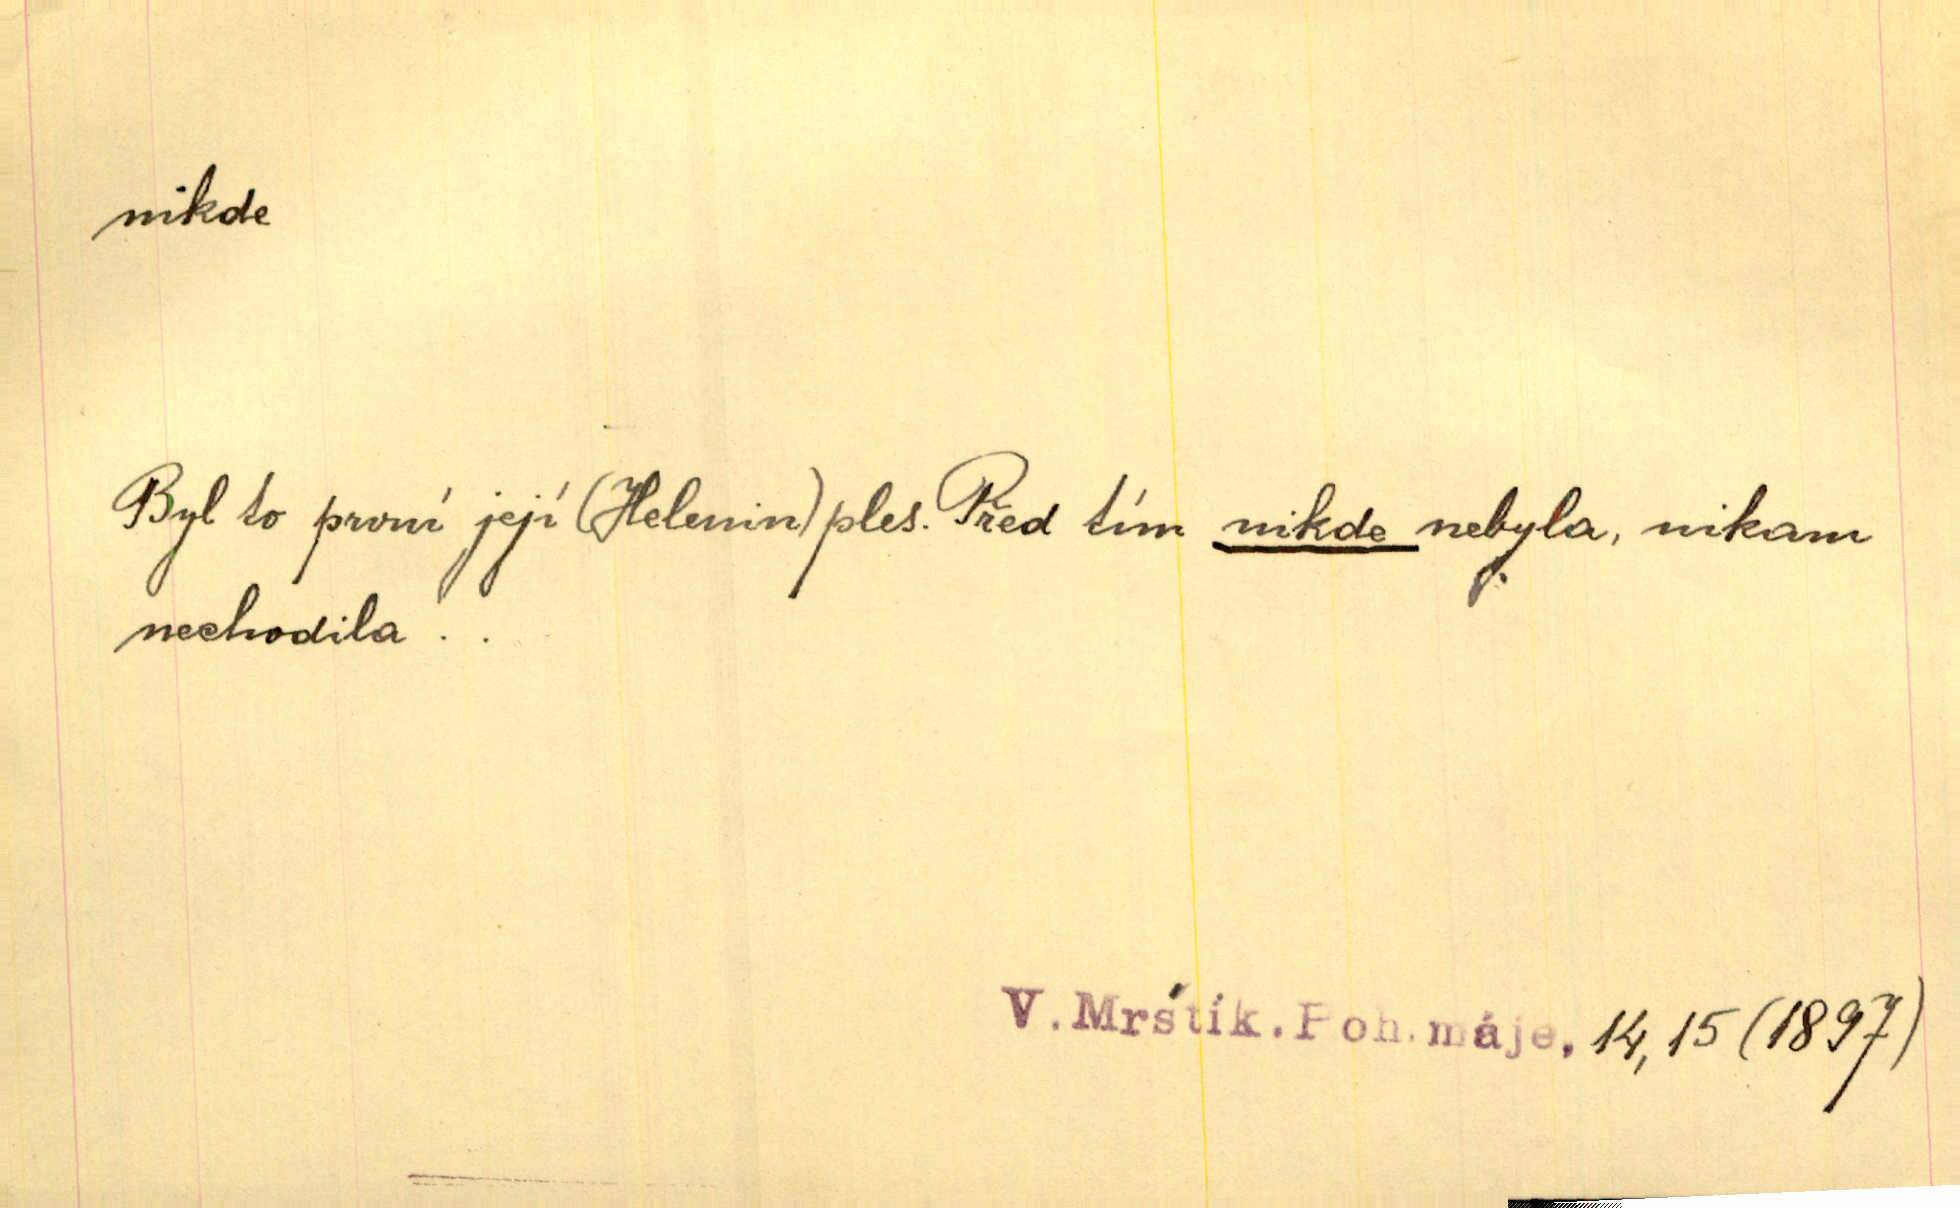 nikde
Byl to první její (Helenin) ples. Před tím nikde nebyla, nikam
nechodila . .
V. Mrštík. Poh. máje, 14, 15 (1897)